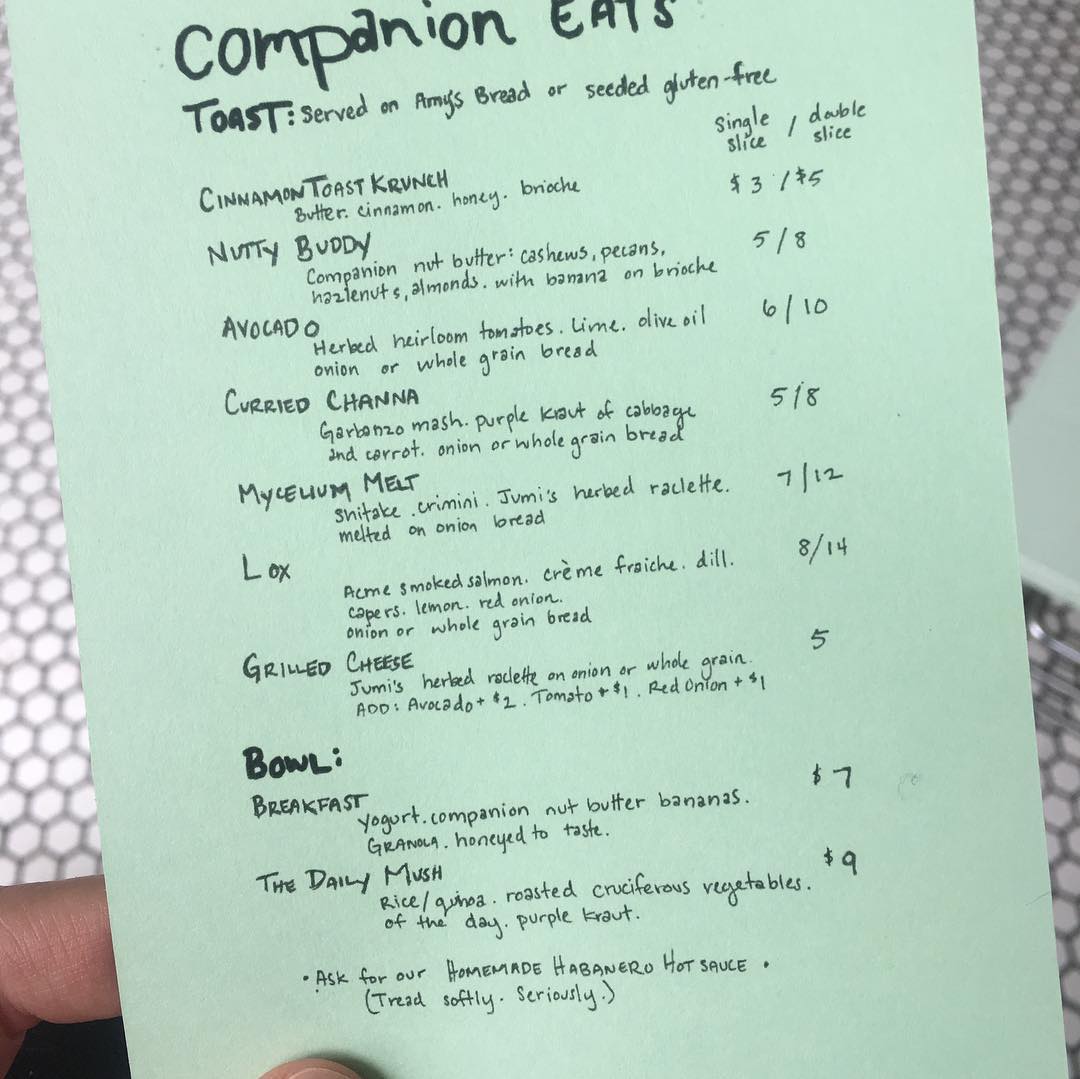 Companion EATS
TOAST: Served on Amy's Bread or seeded gluten-free
Single slice / double slice
CINNAMON TOAST KRUNCH $3 / $5
Butter. cinnamon. honey. brioche
NUTTY BUDDY 5/8
Companion nut butter: cashews, pecans,
hazlenuts, almonds. with banana on brioche
AVOCADO 6/10
Herbed heirloom tomatoes. Lime. olive oil
onion or whole grain bread
CURRIED CHANNA 5/8
Garbanzo mash. purple kraut of cabbage
and carrot. onion or whole grain bread
MYCELIUM MELT 7/12
Shitake. crimini. Jumi's herbed raclette.
melted on onion bread
LOX 8/14
Acme smoked salmon. crème fraiche. dill.
capers. lemon. red onion.
onion or whole grain bread
GRILLED CHEESE 5
Jumi's herbed raclette on onion or whole grain.
ADD: Avocado + $2. Tomato + $1. Red Onion + $1
BOWL:
BREAKFAST $7
Yogurt. companion nut butter bananas.
GRANOLA. honeyed to taste.
THE DAILY MUSH $9
Rice/quinoa. roasted cruciferous vegetables.
of the day. purple kraut.
• ASK for our HOMEMADE HABANERO HOT SAUCE •
(Tread softly. Seriously.)